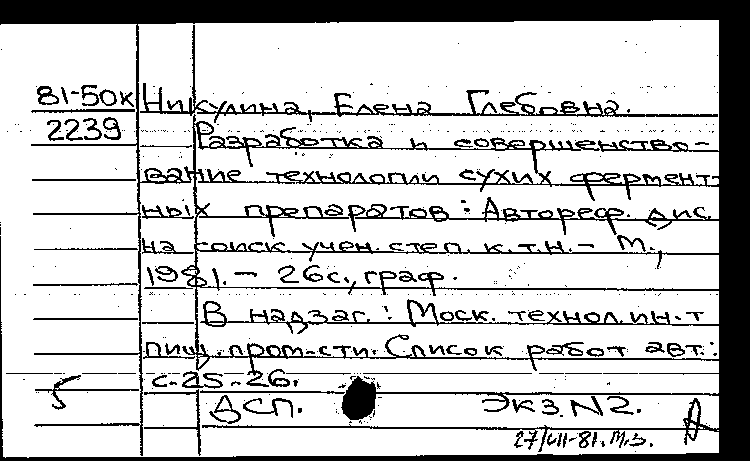 81-50к Никулина, Елена Глебовна.
2239 Разработка и совершенство-
вание технологии сухих фермент-
ных препаратов : Автореф. дис.
на соиск. учен. степ. к.т.н. - М.,
1981. - 26с., граф.
В надзаг. : Моск. технол. ин-т
пищ. пром-сти. Список работ авт.:
с. 25-26.
5
ДСП. Экз. N2.
27/VII-81. М.З.